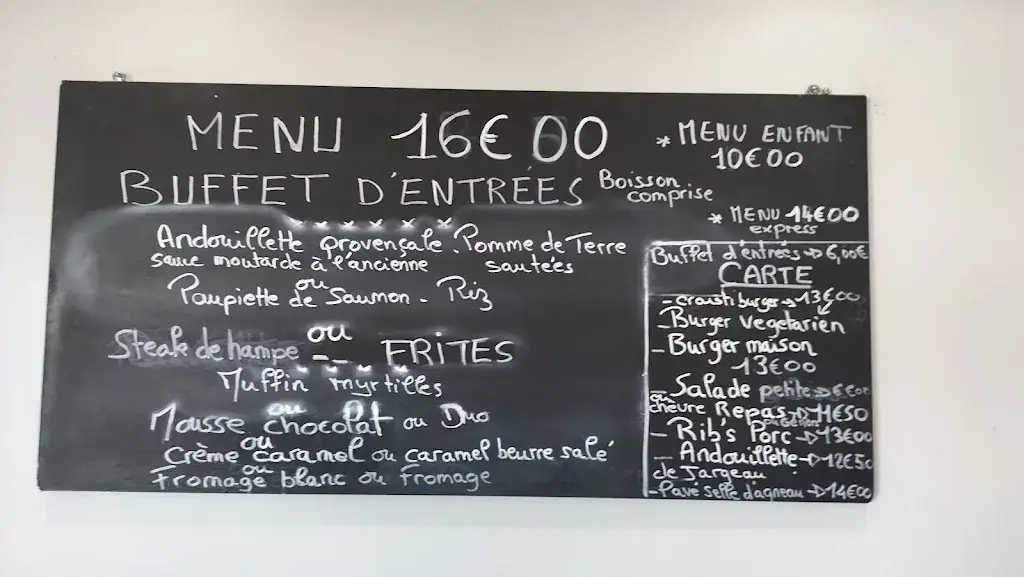 MENU 16€00
BUFFET D'ENTRÉES Boisson comprise
Andouillette provençale. Pomme de Terre
sauce moutarde à l'ancienne sautées
ou
Paupiette de Saumon - Riz
ou
Steak de hampe -- FRITES
Muffin myrtilles
ou
Mousse chocolat ou Duo
ou
Crème caramel ou caramel beurre salé
ou
Fromage blanc ou Fromage
* MENU ENFANT
10€00
* MENU 14€00
express
Buffet d'entrées → 6,00€
CARTE
- crousti burger → 13€00
- Burger vegetarien
- Burger maison
13€00
- Salade petite → 6€00
ou
chèvre Repas → 11€50
ou Gésiers
- Rib's Porc → 13€00
- Andouillette → 12€50
de Jargeau
- Pavé selle d'agneau → 14€00